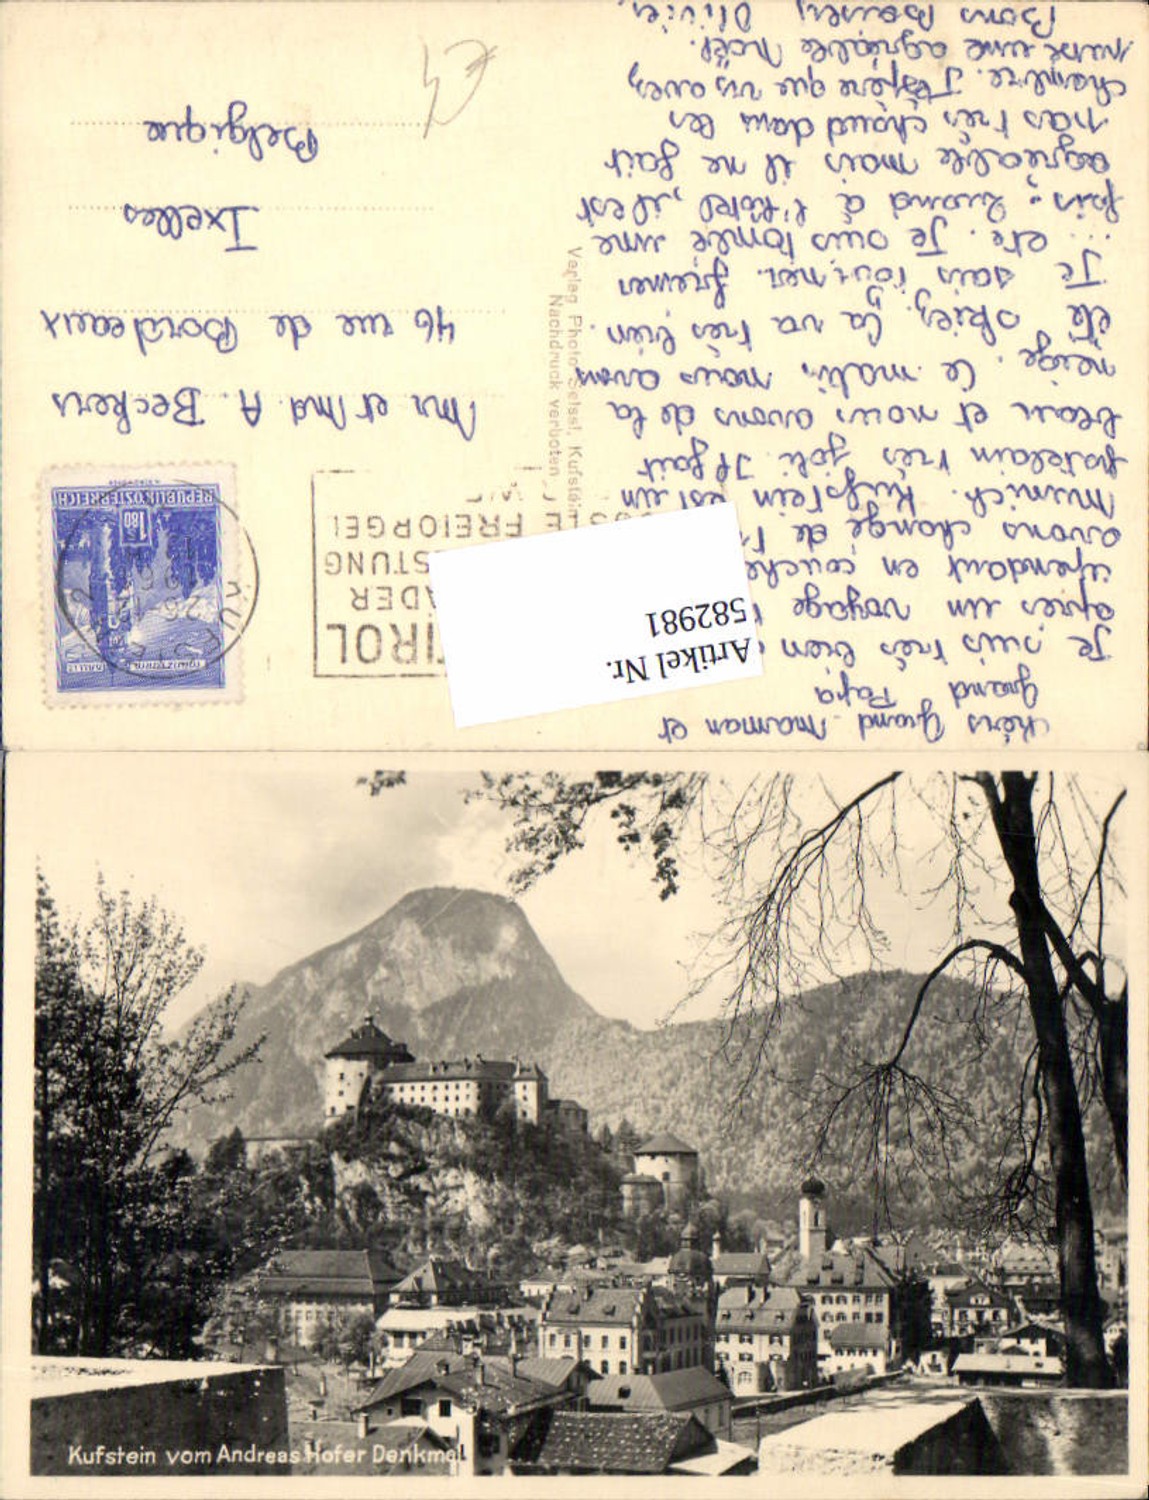 chers Grand Maman et
Grand Papa
Je suis très bien
après un voyage
épendant en couche
avons changé de
Munich. Kufstein est un
patelain très joli. Il fait
beau et nous avons de la
neige. Ce matin nous avons
été skiez. Ça va très bien.
Je sais tourner, freiner
etc. Je suis tombé une
fois; Quand à l'hôtel, il est
agréable mais il ne fait
pas très chaud dans les
chambre. J'espère que vs avez
une agréable Noël.
Bons Baisers Olivier
Verlag Photo Seissl, Kufstein
Nachdruck verboten
TIROL
STUNG
FREIORGEL
REPUBLIK ÖSTERREICH
S 1.80
KUFSTEIN 2
Mr et Md. A. Beckers
46 rue de Bordeaux
Ixelles
Belgique
€4
Artikel Nr.
582981
Kufstein vom Andreas Hofer Denkmal